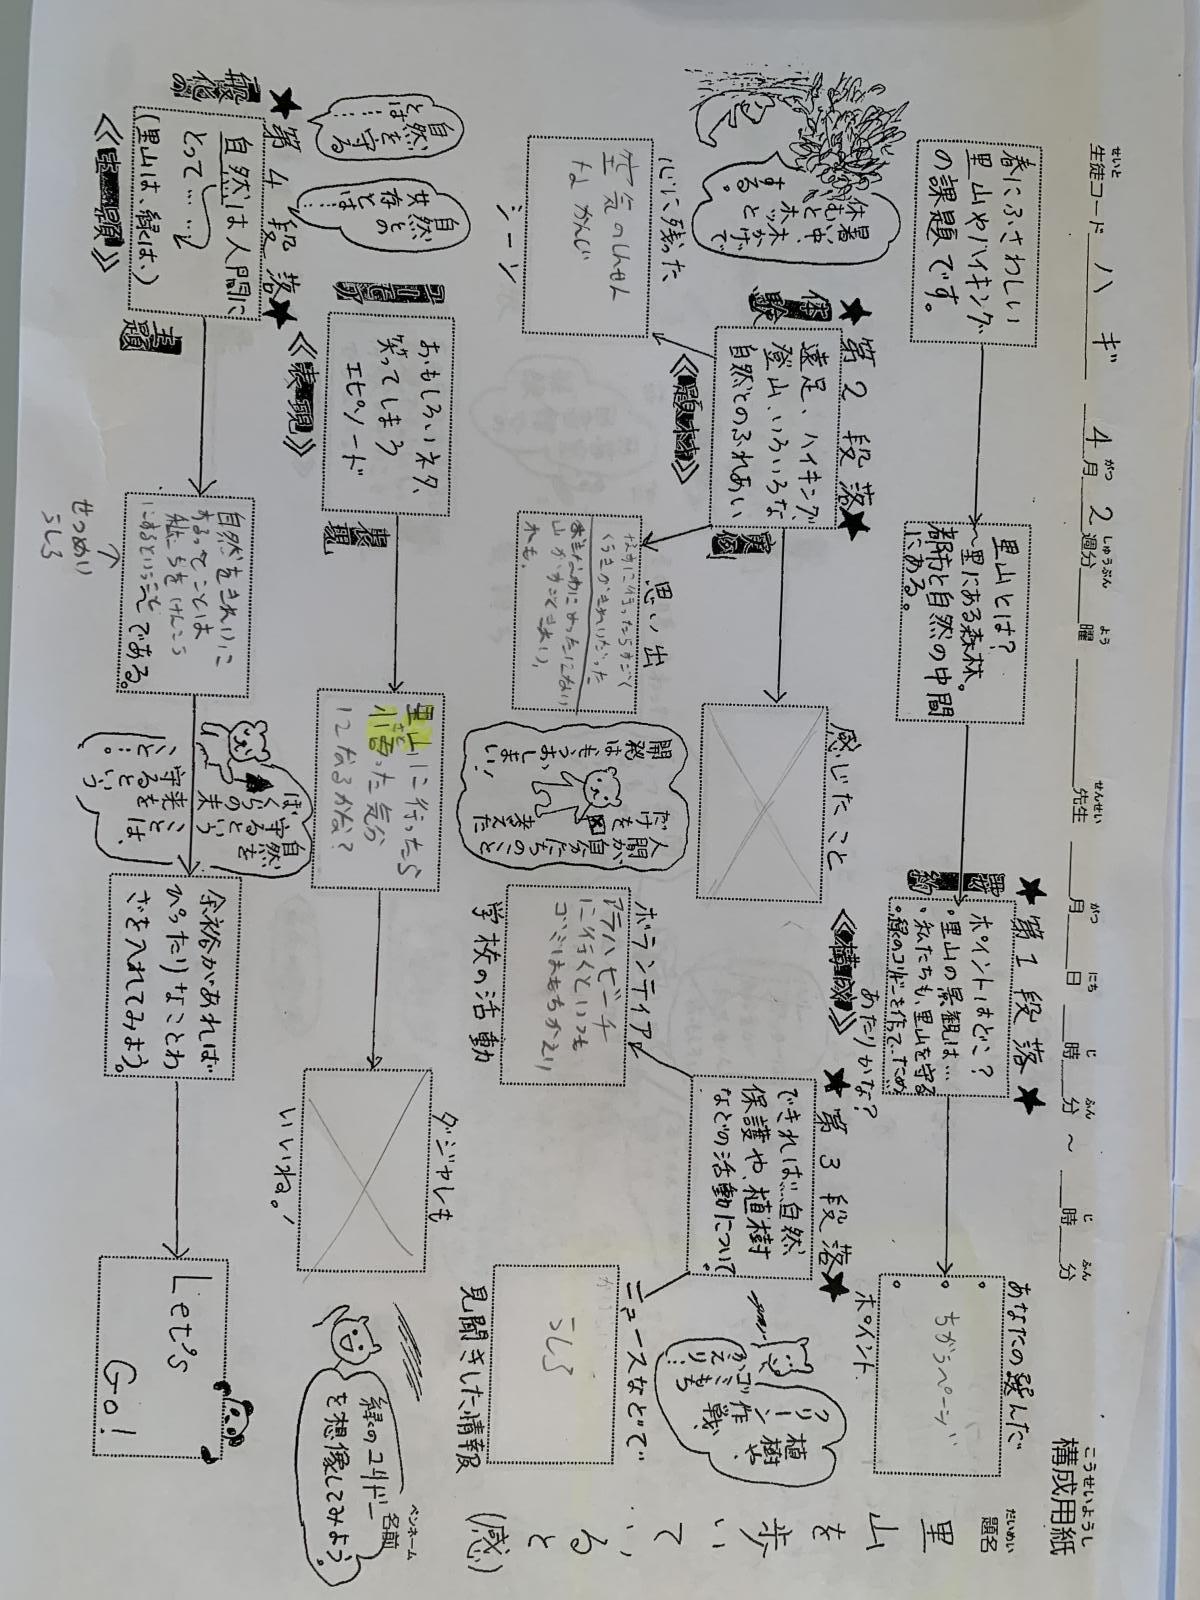 構成用紙
こうせいようし
生徒コード ハギ 4月2週分 曜 先生 月 日 時 分 ～ 時 分
せいと がつ しゅうぶん よう せんせい がつ にち じ ふん じ ふん
題名
だいめい
里山を歩いていると(感)
ペンネーム
名前
春にふさわしい
里山やハイキング
の課題です。
里山とは?
～里にある森林。
都市と自然の中間
にある。
★第1段落★
ポイントはどこ?
・里山の景観は…
・私たちも、里山を守る
・緑のコリドーを作って…ため
あたりかな?
《構成》
あなたの選んだ
ポイント
ちがうページ
暑い中、
休むと木かげで
ホッと
する。
★第2段落★
体験
遠足、ハイキング、
登山、いろいろな
自然とのふれあい
実例
《題材》
心に残った
シーン
空気のしんせん
なかんじ
思い出
感じたこと
開発は
もう
おしまい!
人間が、
自分たちのこと
だけを
考えた
★第3段落★
できれば自然
保護や、植樹
などの活動について。
ボランティア
学校の活動
アラハビーチ
に行くといつも
ゴミはもちかえり
ニュースなどで
見聞きした情報
うしろ
植樹や、
クリーン作戦、
ゴミもち
かえり…
自然を守る
とは……
自然との
共存とは…
おもしろいネタ、
笑ってしまう
エピソード
表現
《表現》
里山に行ったら
悟った気分
になるかな?
ダジャレも
いいね。!
緑のコリドー
を想像してみよう。
★第4段落★
一般化の
主題
自然は人間に
とって……
(里山は、緑は、)
《主題》
自然をきれいに
まもってことは
私たちをけんこう
にするということである。
せつめい
うしろ
自然を
守るという
ことは、
ぼくらの未来を
守ると
いう
こと…。
余裕があれば
ぴったりなことわ
ざを入れてみよう。
Let's
Go!